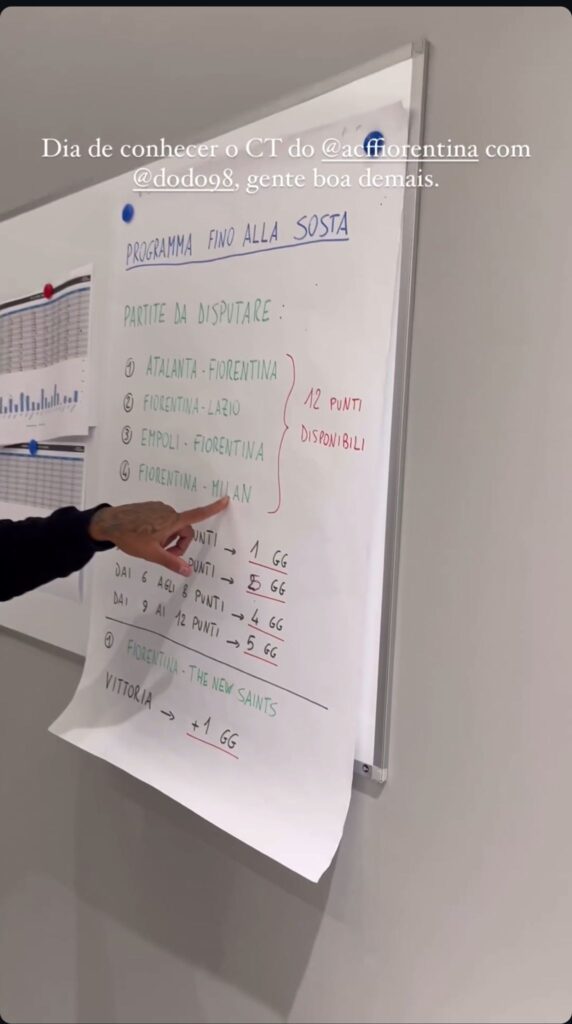 Dia de conhecer o CT do @acffiorentina com
@dodo98, gente boa demais.
PROGRAMMA FINO ALLA SOSTA
PARTITE DA DISPUTARE :
① ATALANTA - FIORENTINA
② FIORENTINA - LAZIO
③ EMPOLI - FIORENTINA
④ FIORENTINA - MILAN
12 PUNTI
DISPONIBILI
→ 1 GG
PUNTI → GG
DAI 6 AGLI 8 PUNTI → 4 GG
DAI 9 AI 12 PUNTI → 5 GG
① FIORENTINA - THE NEW SAINTS
VITTORIA → +1 GG